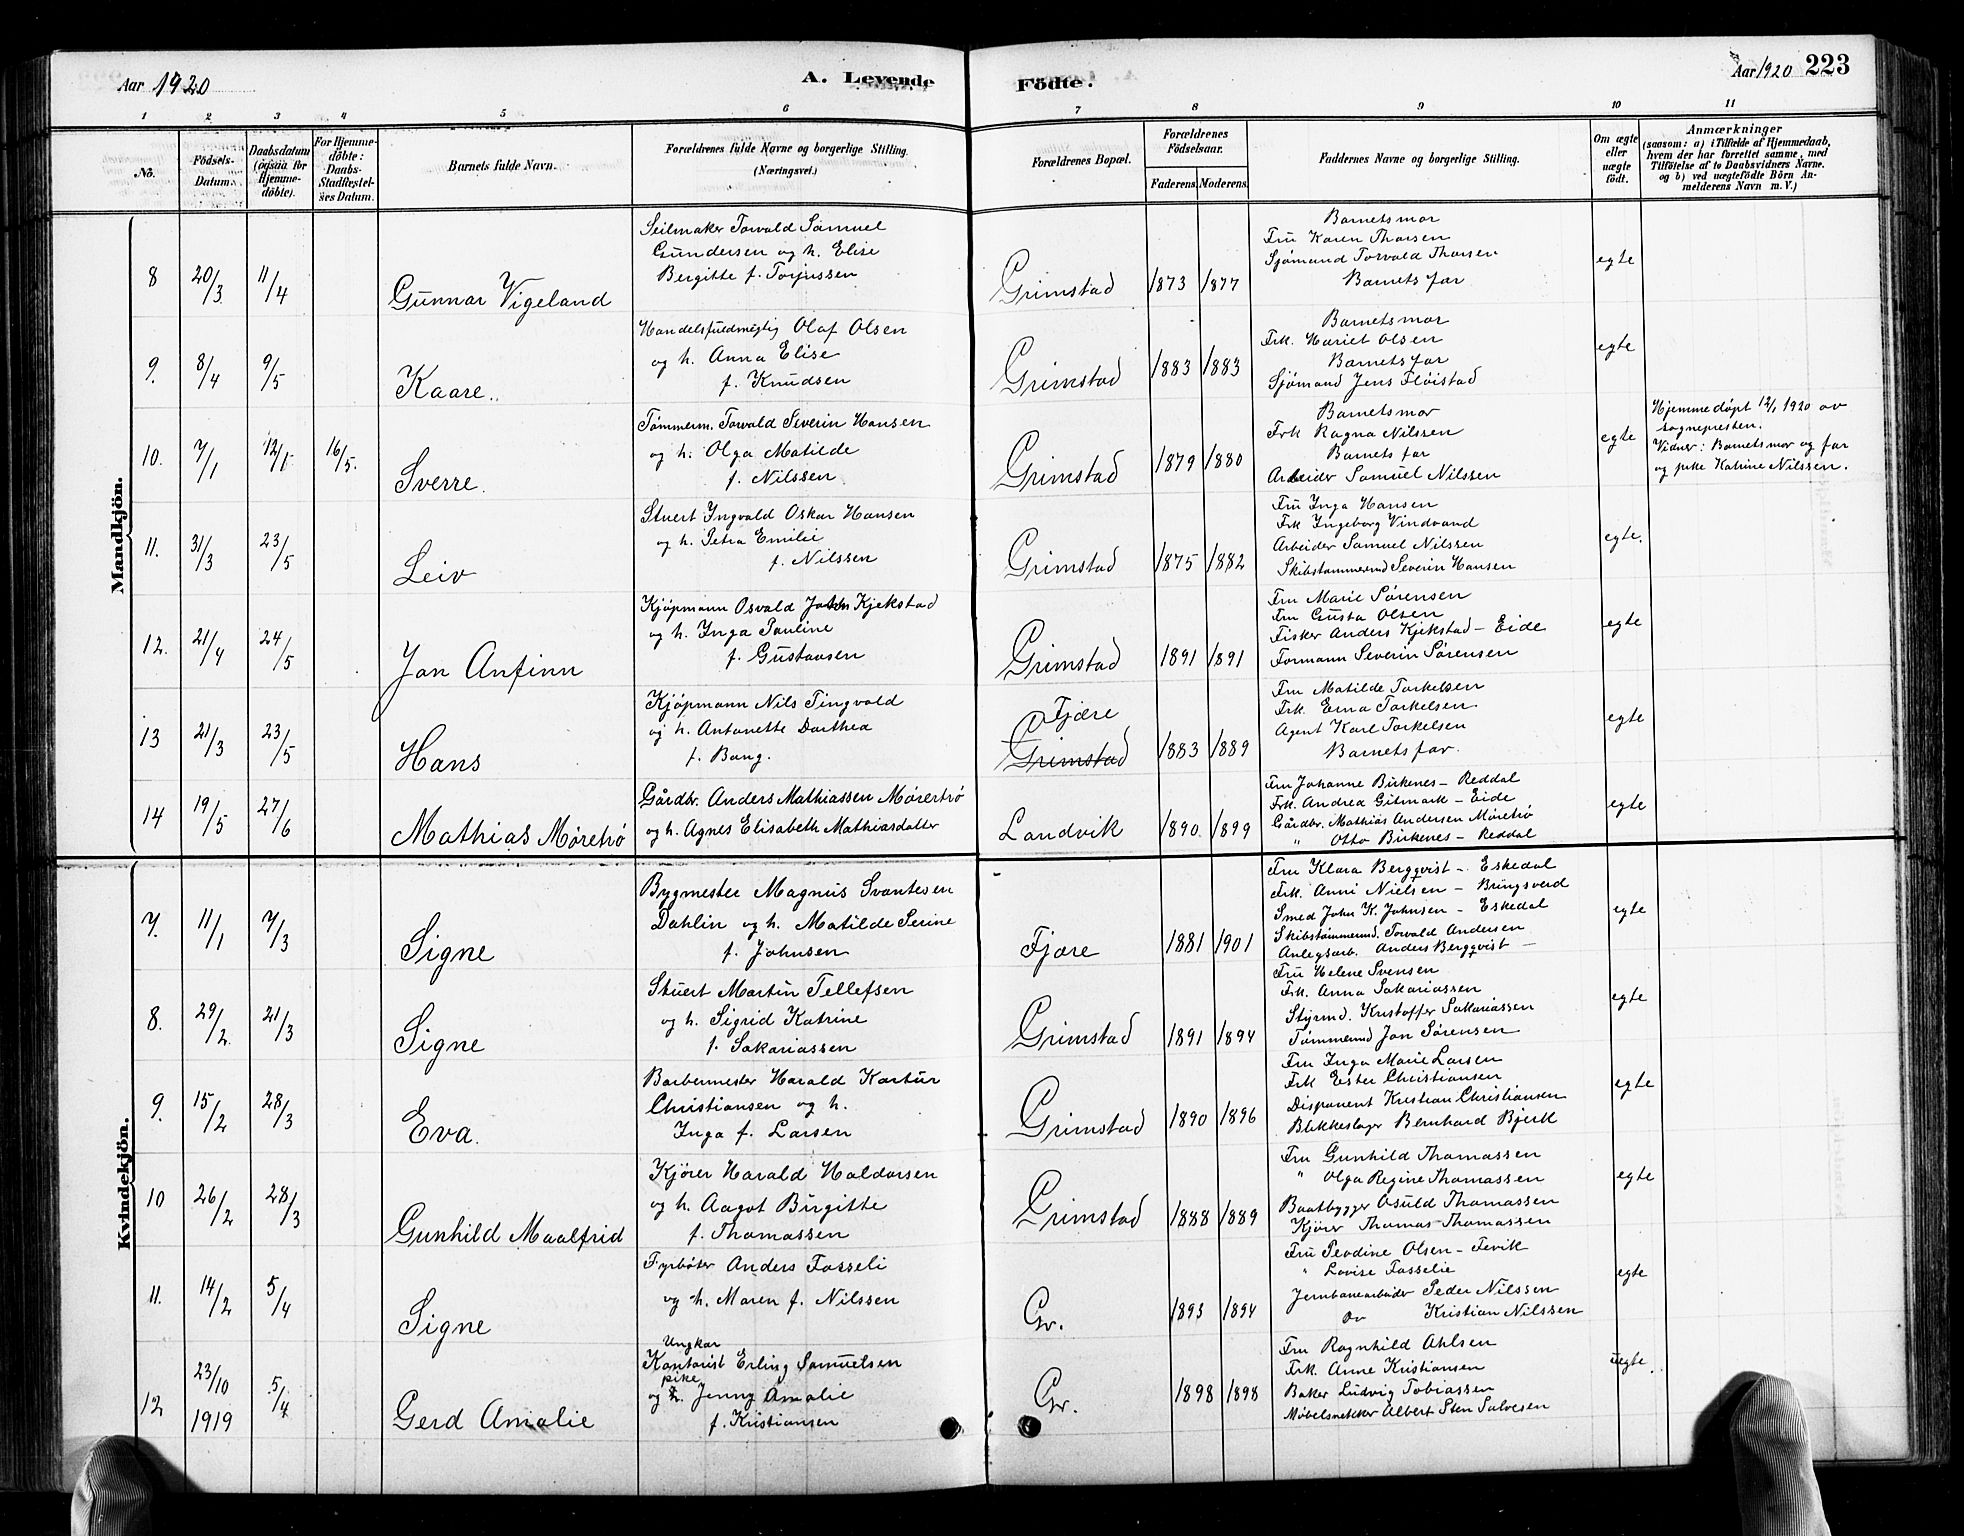 Aar 1920
A. Levende
Födte.
Aar 1920 223
1 2 3 4 5 6 7 8 9 10 11
No.
Födsels-
Datum.
Daabsdatum
(ogsaa for
Hjemme-
döbte).
For Hjemme-
döbte:
Daabs-
Stadfæstel-
ses Datum.
Barnets fulde Navn.
Forældrenes fulde Navne og borgerlige Stilling.
(Næringsvei.)
Forældrenes Bopæl.
Forældrenes
Födselsaar.
Faderens. Moderens.
Faddernes Navne og borgerlige Stilling.
Om ægte
eller
uægte
födt.
Anmærkninger
(saasom: a) i Tilfælde af Hjemmedaab,
hvem der har forrettet samme, med
Tilföielse af to Daabsvidners Navne.
og b) ved uægtefödte Börn An-
melderens Navn m. V.)
Mandkjön.
8 20/3 11/4 Gunnar Vigeland
Seilmaker Torvald Samuel
Gundersen og h. Elise
Bergitte f. Torjussen
Grimstad 1873 1877
Barnets mor
Fru Karen Thorsen
Sjømand Torvald Thorsen
Barnets far
egte
9. 8/4 9/5 Kaare.
Handelsfuldmegtig Olaf Olsen
og h. Anna Elise
f. Knudsen
Grimstad 1883 1883
Barnets mor
Frk. Hariet Olsen
Barnets far
Sjømand Jens Fløistad
egte
10. 7/1 12/1 16/5. Sverre.
Tømmerm. Torvald Severin Hansen
og h. Olga Matilde
f. Nilssen
Grimstad 1879 1880
Barnets mor
Frk Ragna Nilssen
Barnets far
Arbeider Samuel Nilssen
egte
Hjemmedøpt 12/1 1920 av
sognepresten.
Vidner: Barnets mor og far
og pike Katrine Nilssen.
11. 31/3 23/5 Leiv
Stuert Ingvald Oskar Hansen
og h. Petra Emilie
f. Nilssen
Grimstad 1875 1882
Fru Inga Hansen
Frk Ingeborg Vindvand
Arbeider Samuel Nilssen
Skibstømmermd Severin Hansen
egte.
12. 21/4 24/5 Jan Anfinn
Kjøpmann Osvald John Kjekstad
og h. Inga Pauline
f. Gustavsen
Grimstad 1891 1891
Fru Marie Sørensen
Fru Gusta Olsen
Fisker Anders Kjekstad - Eide
Formann Severin Sørensen
egte
13 21/3 23/5 Hans
Kjøpmann Nils Tingvald
og h. Antonette Dorthea
f. Bang.
Fjære
Grimstad 1883 1889
Fru Matilde Torkelsen
Frk. Erna Torkelsen.
Agent Karl Torkelsen
Barnets far.
egte
14 19/5 27/6 Mathias Møretrø
Gårdbr. Anders Mathiassen Møretrø
og h. Agnes Elisabeth Mathiasdatter
Landvik 1890. 1899
Fru Johanne Birkenes - Reddal
Frk. Andrea Gitmark - Eide
Gårdbr. Mathias Andersen Møretrø
" Otto Birkenes - Reddal
egte
Kvindekjön.
7. 11/1 7/3 Signe
Bygmester Magnus Svantesen
Dahlin og h. Matilde Serine
f. Johnsen
Fjære 1881 1901
Fru Klara Bergqvist - Eskedal
Frk. Anni Nielsen - Bringsverd
Smed John K. Johnsen - Eskedal
Skibstømmermd. Torvald Andersen
Anlegsarb. Anders Bergqvist -
egte
8. 29/2 21/3 Signe
Stuert Martin Tellefsen
og h. Sigrid Katrine
f. Sakariassen
Grimstad 1891 1894
Fru Helene Svensen
Frk. Anna Sakariassen
Styrmd. Kristoffer Sakariassen
Tømmermd Jan Sørensen
egte
9. 15/2 28/3 Eva.
Barbermester Harald Kartur
Christiansen og h.
Inga f. Larsen
Grimstad 1890 1896
Fru Inga Marie Larsen
Frk Ester Christiansen
Disponent Kristian Christiansen
Blikkeslager Bernhard Bjerk
egte
10 26/2 28/3 Gunhild Maalfrid
Kjører Harald Haldorsen
og h. Aagot Birgitte
f. Thomassen
Grimstad 1888 1889
Fru Gunhild Thomassen
" Olga Regine Thomassen
Baatbygger Osuld Thomassen
Kjører Thomas Thomassen
egte
11. 14/2 5/4 Signe
Fyrbøter Anders Fosseli
og h. Maren f. Nilssen
Gr. 1893 1894
Fru Peodine Olsen - Fevik
" Lovise Fosselie
Jernbanearbeider Peder Nilssen
Do Kristian Nilssen
egte
12 23/10 1919 5/4 Gerd Amalie
Ungkar
Kontorist Erling Samuelsen
pike
og h. Jenny Amalie
f. Kristiansen
Gr. 1898 1898
Fru Ragnhild Ahlsen
Frk. Anne Kristiansen
Baker Ludvig Tobiassen
Møbelsnekker Albert Sten Salvesen
uegte